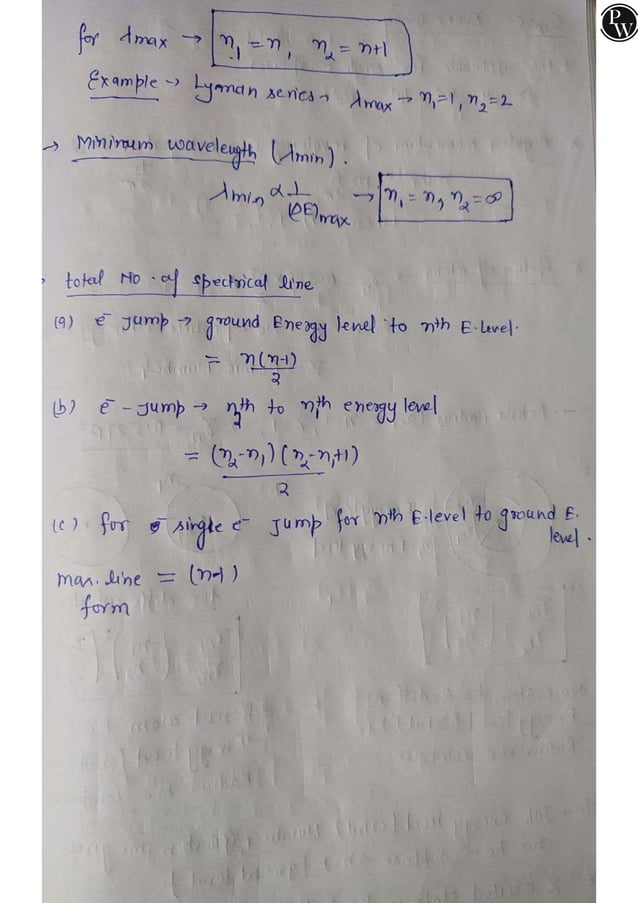 PW
for λmax → n₁ = n, n₂ = n+1
Example → Lyman series → λmax → n₁=1, n₂=2
→ Mininum wavelength (λmin).
λmin ∝ 1/(ΔE)max → n₁ = n, n₂ = ∞
total No. of spectrical line
(a) e⁻ Jump → ground Energy level to nth E-level.
= n(n-1)/2
(b) e⁻ - Jump → n₂th to n₁th energy level
= (n₂-n₁)(n₂-n₁+1)/2
(c) for single e⁻ Jump for nth E-level to ground E.
level.
max. line = (n-1)
form